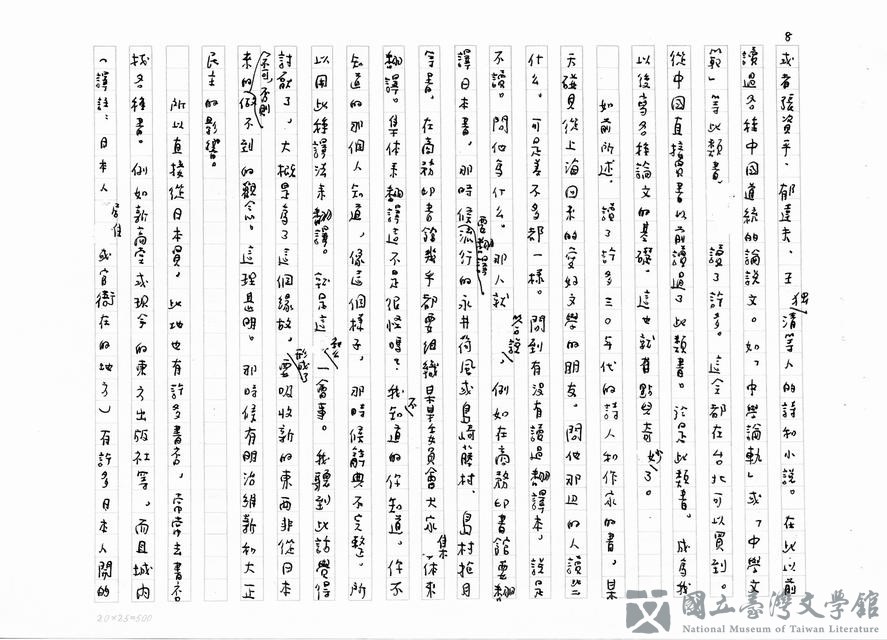 8
或者張資平、郁達夫、王獨清等人的詩和小說。在此以前
讀過各種中國道統的論說文。如「中學論軌」或「中學文
範」等此類書　讀了許多。這全都在台北可以買到。
從中國直接買書以前讀過了此類書。於是此類書。成為我
以後寫各種論文的基礎。這也就有點兒奇妙了。
如前所述。讀了許多三○年代的詩人和作家的書，某
天發見從上海回來的愛好文學的朋友。問他那边的人讀些
什么。可是差不多都一樣。問到有沒有讀過翻譯本。說是
不讀。問他為什么。那人就答說，例如在商務印書館要翻
譯日本書，那時候要翻譯流行的永井荷風或島崎藤村、島村抱月
等書，在商務印書館幾乎都要組織某某委員會大家集体來
翻譯。集体來翻譯這不是很怪嗎？我知道的你不知道。你不
知道的那個人知道，像這個樣子，那時候辭典不完整。所
以用此種譯法來翻譯。就是這和么一會事。我聽到此話覺得
討厭了，大概是為了這個緣故，形成了要吸收新的東西非從日本
來的不可否則做不到的觀念。這理且明。那時候有明治維新和大正
民主的影響。
所以直接從日本買，此地也有許多書店，常常去書店
找各種書。例如新高堂或現今的東方出版社等。而且城內
（譯註：日本人居住或官衙在的地方）有許多日本人開的
20×25=500
國立臺灣文學館
National Museum of Taiwan Literature